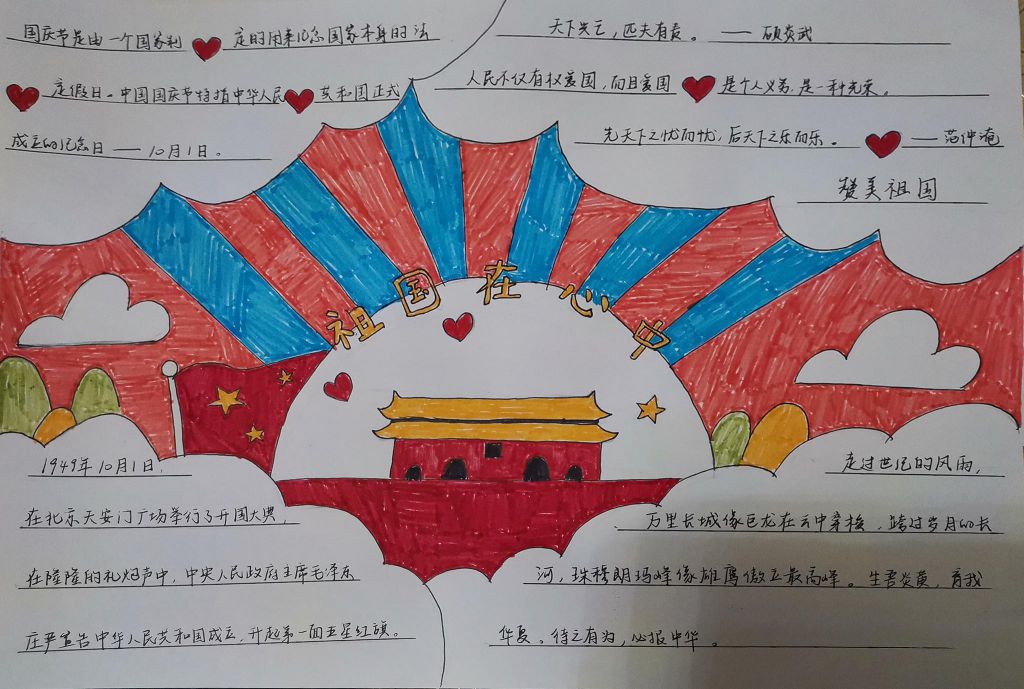 国庆节是由一个国家制定的用来纪念国家本身的法
定假日。中国国庆节特指中华人民共和国正式
成立的纪念日——10月1日。
天下兴亡，匹夫有责。——顾炎武
人民不仅有权爱国，而且爱国是个人义务，是一种光荣。
先天下之忧而忧，后天下之乐而乐。——范仲淹
赞美祖国
祖国在心中
1949年10月1日，
在北京天安门广场举行了开国大典，
在隆隆的礼炮声中，中央人民政府主席毛泽东
庄严宣告中华人民共和国成立，升起第一面五星红旗。
走过世纪的风雨，
万里长城像巨龙在云中穿梭，跨过岁月的长
河，珠穆朗玛峰像雄鹰傲立最高峰。生吾炎黄，育我
华夏。待之有为，必报中华。